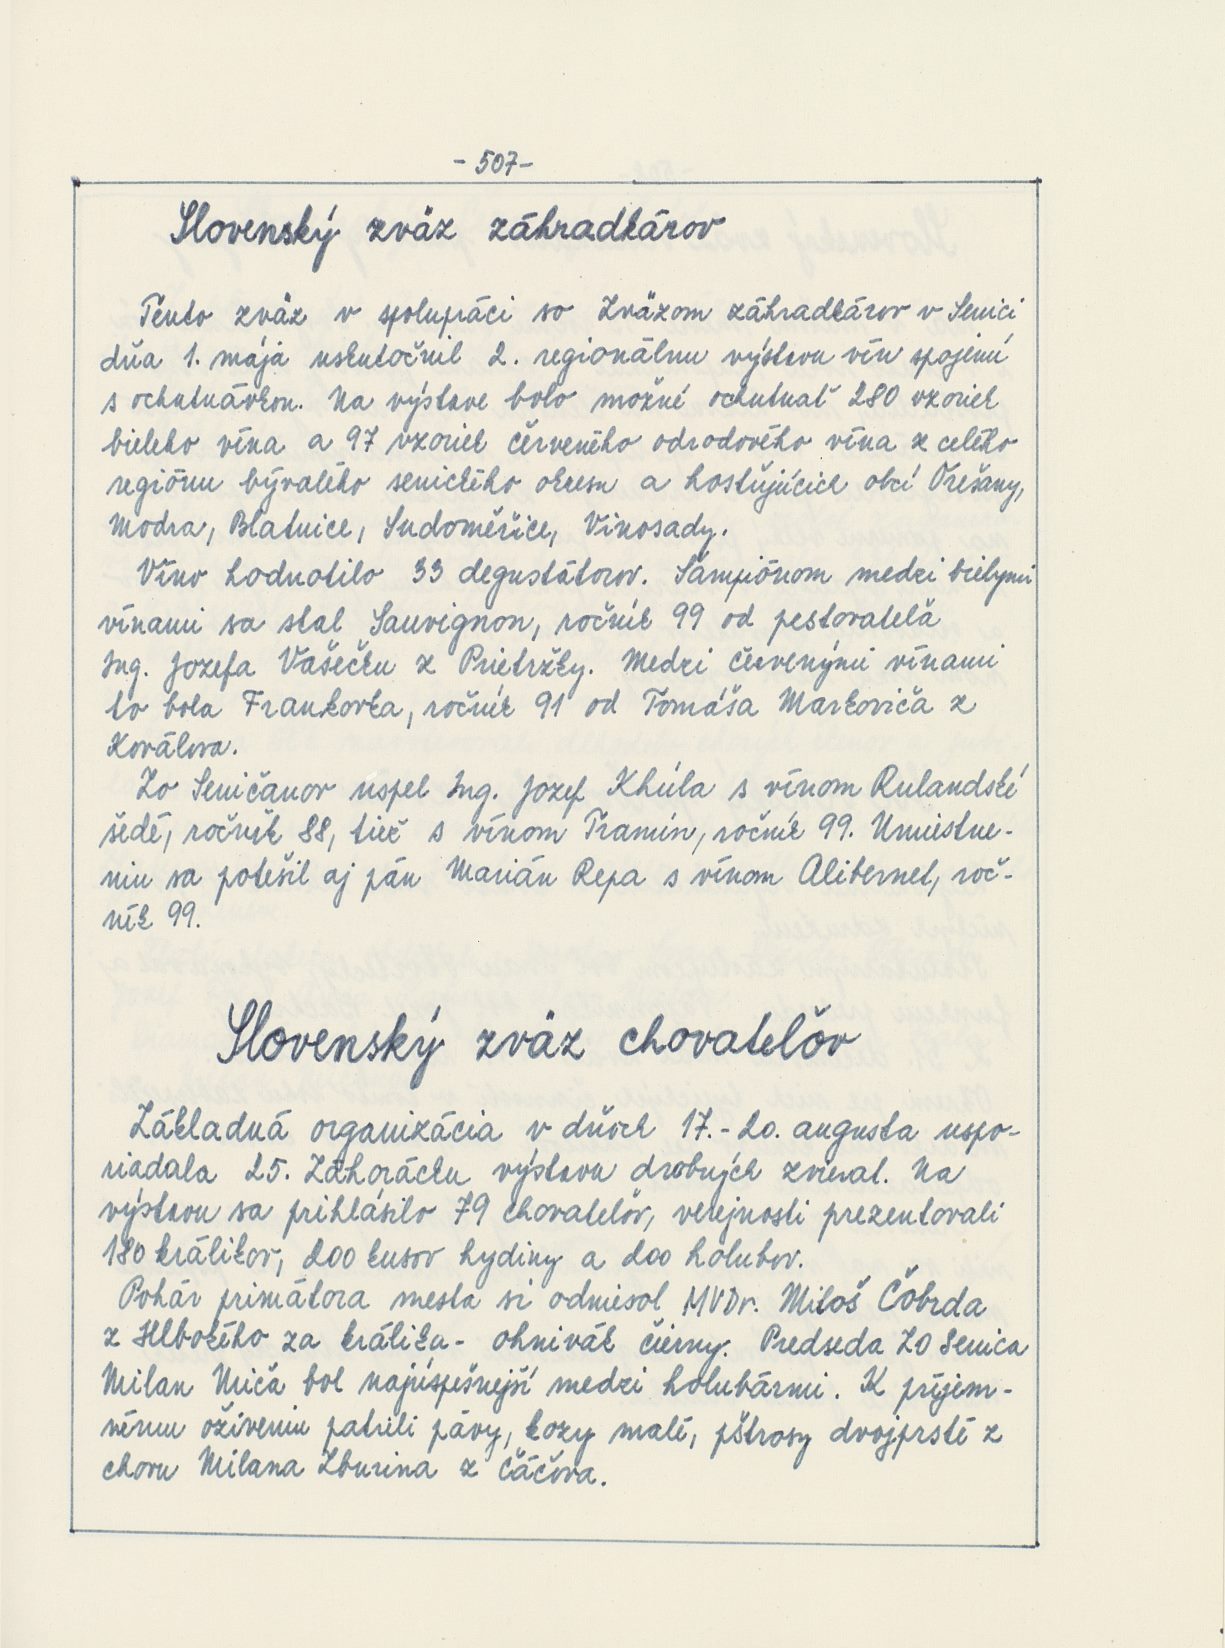 - 507 -
Slovenský zväz záhradkárov
Tento zväz v spolupráci so Zväzom záhradkárov v Senici
dňa 1. mája uskutočnil 2. regionálnu výstavu vín spojenú
s ochutnávkou. Na výstave bolo možné ochutnať 280 vzoriek
bieleho vína a 97 vzoriek červeného odrodového vína z celého
regiónu bývalého senického okresu a hosťujúcich obcí Orešany,
Modra, Blatnice, Sudoměřice, Vinosady.
Víno hodnotilo 33 degustátorov. Šampiónom medzi bielymi
vínami sa stal Sauvignon, ročník 99 od pestovateľa
Ing. Jozefa Vašečku z Prietržky. Medzi červenými vínami
to bola Frankovka, ročník 91 od Tomáša Markoviča z
Koválova.
Zo Seničanov uspel Ing. Jozef Khúla s vínom Rulandské
šedé, ročník 88, tiež s vínom Tramín, ročník 99. Umiestne-
niu sa potešil aj pán Marián Repa s vínom Alibernet, roč-
ník 99.
Slovenský zväz chovateľov
Základná organizácia v dňoch 17.- 20. augusta uspo-
riadala 25. Záhorácku výstavu drobných zvierat. Na
výstavu sa prihlásilo 79 chovateľov, verejnosti prezentovali
180 králikov, 200 kusov hydiny a 200 holubov.
Pohár primátora mesta si odniesol MVDr. Miloš Čobrda
z Hlbokého za králika - ohnivák čierny. Predseda ZO Senica
Milan Miča bol najúspešnejší medzi holubármi. K príjem-
nému oživeniu patrili pávy, kozy malé, pštrosy dvojprsté z
chovu Milana Zburina z Čáčova.